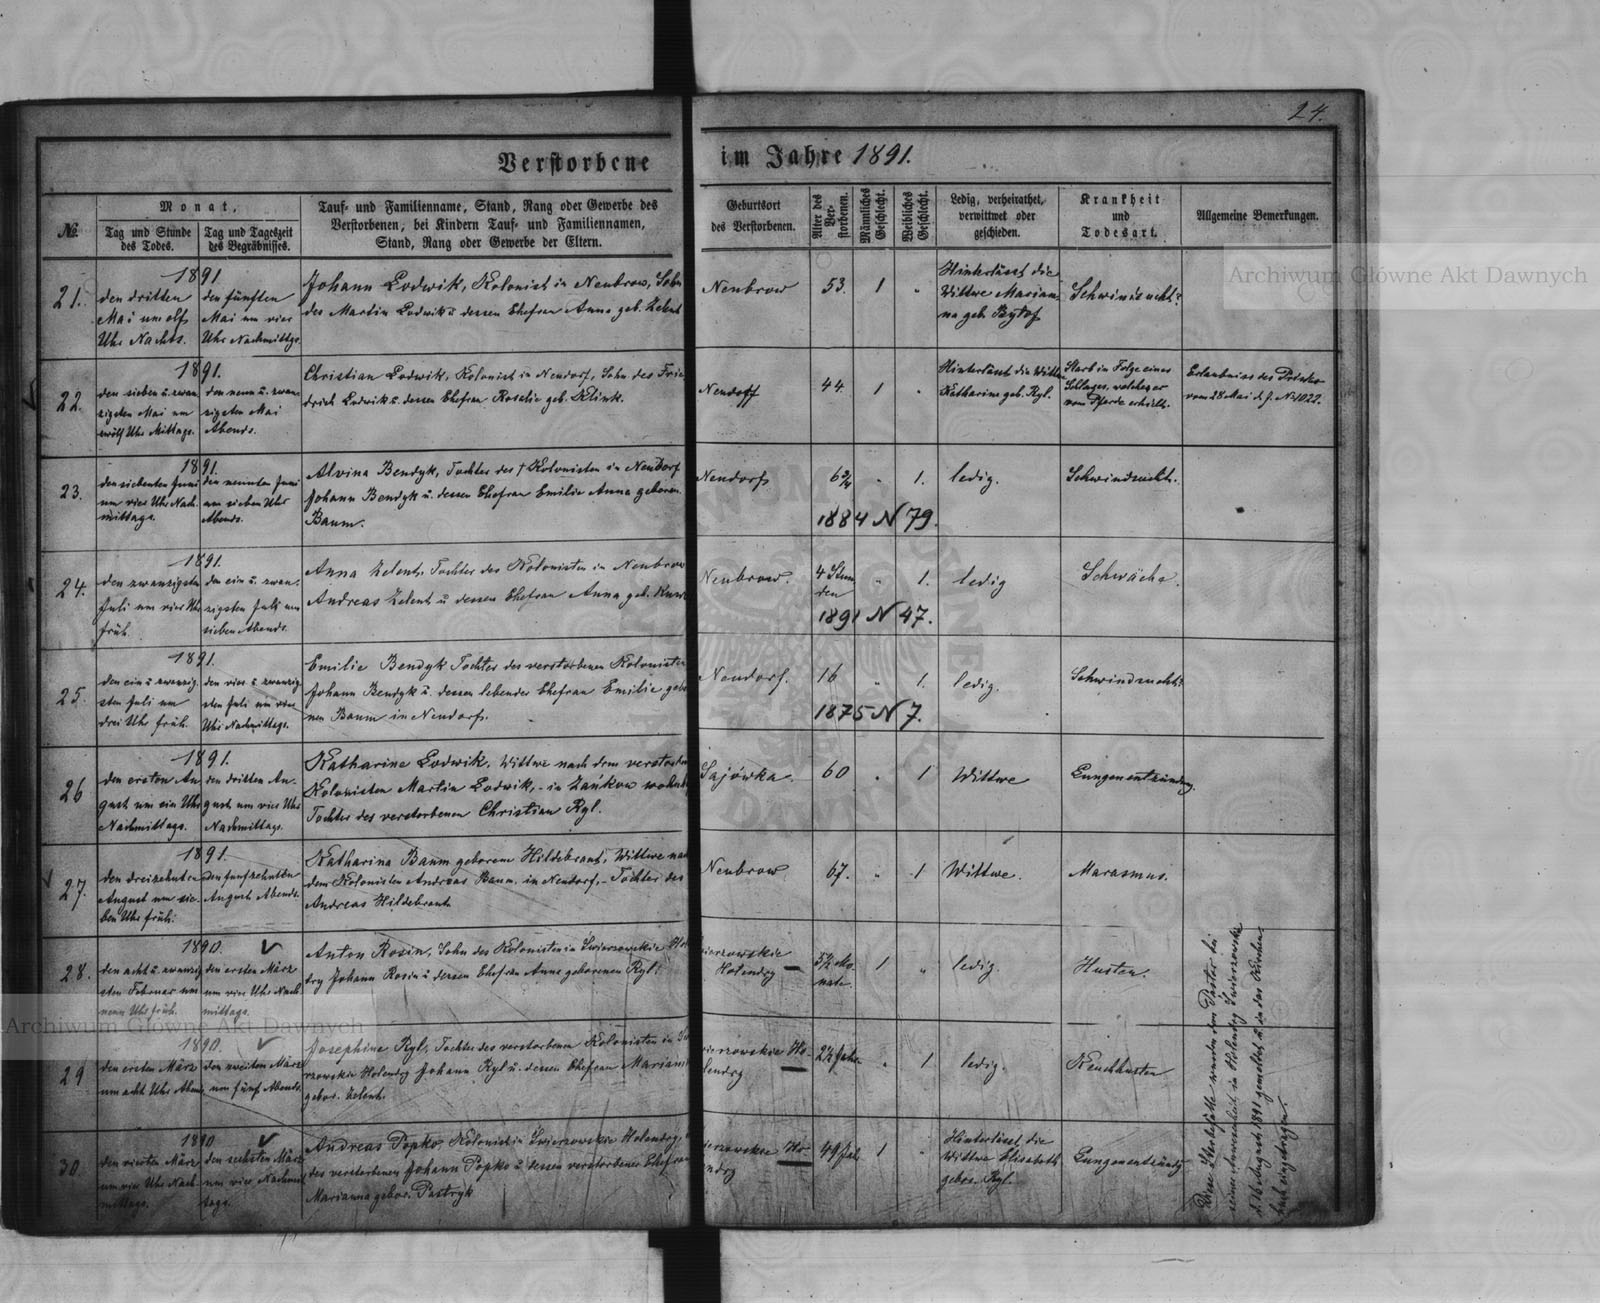 24.
Verstorbene im Jahre 1891.
№.
Monat,
Tag und Stunde
des Todes.
Tag und Tageszeit
des Begräbnisses.
Tauf- und Familienname, Stand, Rang oder Gewerbe des
Verstorbenen, bei Kindern Tauf- und Familiennamen,
Stand, Rang oder Gewerbe der Eltern.
Geburtsort
des Verstorbenen.
Alter des
Ver-
storbenen.
Männliches
Geschlecht.
Weibliches
Geschlecht.
Ledig, verheirathet,
verwittwet oder
geschieden.
Krankheit
und
Todesart.
Allgemeine Bemerkungen.
21.
1891.
den dritten
Mai um elf
Uhr Nachts.
den fünften
Mai um vier
Uhr Nachmittgs.
Johann Lodwik, Kolonist in Neubrow, Sohn
des Martin Lodwik u. dessen Ehefrau Anna geb. Zelent
Neubrow
53.
1
"
Hinterlässt die
Wittwe Marian-
na geb.
Schwindsucht.
22.
1891.
den sieben u. zwan
zigsten Mai um
zwölf Uhr Mittags.
den neun u. zwan-
zigsten Mai
Abends.
Christian Lodwik, Kolonist in Neudorf, Sohn des Frie
drich Ludwik u. dessen Ehefrau Rosalie geb. Klink.
Neudorf
44.
1
"
Hinterlässt die Wittwe
Katharina geb. Ryl.
Starb in Folge eines
Schlages, welchen er
vom Pferde erhielt.
Erlaubniss des
vom 28 Mai d. J. № 1022.
23.
1891.
den siebenten Juni
um vier Uhr Nach
mittags.
den neunten Juni
um sieben Uhr
Abends.
Alvina Bendyk, Tochter des † Kolonisten in Neudorf
Johann Bendyk u. dessen Ehefrau Emilie Anna geboren.
Baum.
Neudorf
6¾
"
1.
ledig.
Schwindsucht.
1884 N 79.
24.
1891.
den zwanzigsten
Juli um vier Uhr
früh.
den ein u. zwan-
zigsten Juli um
sieben Abends.
Anna Zelent, Tochter des Kolonisten in Neubrow
Andreas Zelent u dessen Ehefrau Anna geb.
Neubrow.
4 Stun
den
"
1.
ledig
Schwäche.
1891 N 47.
25.
1891.
den ein u zwanzig-
sten Juli um
drei Uhr früh.
den vier u zwanzig
sten Juli um vier
Uhr Nachmittags.
Emilie Bendyk Tochter des verstorbenen Kolonisten
Johann Bendyk u. dessen lebender Ehefrau Emilie gebo
nen Baum in Neudorf.
Neudorf.
16
"
1.
ledig.
Schwindsucht.
1875 N 7.
26
1891.
den ersten Au
gust um ein Uhr
Nachmittags.
den dritten Au-
gust um vier Uhr
Nachmittags.
Katharine Lodwik, Wittwe nach dem verstorben
Kolonisten Martin Lodwik, - in Zańkow wohnh
Tochter des verstorbenen Christian Ryl.
Sajówka.
60
"
1
Wittwe
Lungenentzündung.
27.
1891.
den dreizehnten
August um sie-
ben Uhr früh.
den funfzehnten
August Abends.
Katharina Baum geborene Hildebrant, Wittwe nach
dem Kolonisten Andreas Baum. in Neudorf, - Tochter des
Andreas Hildebrant
Neubrow
67.
"
1
Wittwe.
Marasmus.
28.
1890. ✓
den acht u. zwanzig
sten Februar um
neun Uhr früh.
den ersten März
um vier Uhr Nach
mittags.
Anton Rosin, Sohn des Kolonisten in Świerzowskie Hol
try Johann Rosin u dessen Ehefrau Anna geborenen Ryl.
ierzowskie
Holendry
5½ Mo-
nate.
1
"
ledig.
Husten.
29
1890. ✓
den ersten März
um acht Uhr Abends.
den zweiten März
um fünf Abends.
Josephine Ryl, Tochter des verstorbenen Kolonisten in Św
rzowskie Holendry Johann Ryl u. dessen Ehefrau Mariann
gebor. Zelent.
ierzowskie Ho-
lendry
2½ Jahr
"
1
ledig.
Keuchhusten
30.
1890 ✓
den vierten März
um vier Uhr Nach-
mittags.
den sechsten März
um vier Nachmit
tags.
Andreas Popko, Kolonist in Świerzowskie Holendry,
des verstorbenen Johann Popko u dessen verstorbener Ehefrau
Marianna gebor. Pastryk
ierzowskie Ho-
endry
49 Jah
1
"
Hinterlässt die
Wittwe Elisabeth
gebor. Ryl.
Lungenentzündg
Diese Sterbefälle wurden dem Pastor bei
seiner Anwesenheit in Holendry Świerzowskie
d. 16 August 1891 gemeldet u. in das Kirchen-
buch eingetragen.
Archiwum Główne Akt Dawnych
Archiwum Główne Akt Dawnych